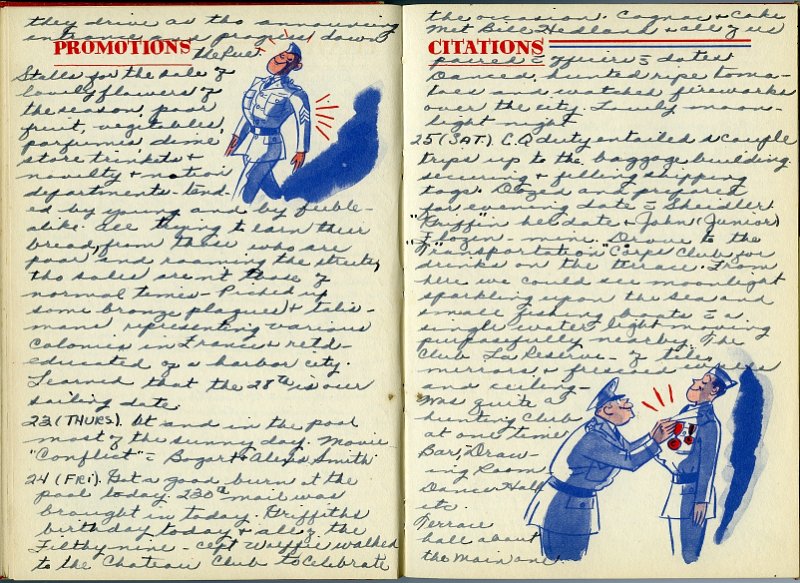 they drive as tho announcing
entrance and progress down
PROMOTIONS
the Rue
Stalls for the sale of
lovely flowers of
the season, poor
fruit, vegetables,
perfumes, dime
store trinkets +
novelty + notion
departments - tend-
ed by young and by feeble-
alike - all trying to earn their
bread, from those who are
poor and roaming the streets,
tho sales aren't those of
normal times - Picked up
some bronze plaques + talis-
mans, representing various
Colonies in France + 
educated of a harbor city.
Learned that the 28th is our
sailing date.
23 (THURS). At and in the pool
most of the sunny day. Movie
"Conflict" = Bogart + Alexis Smith
24 (FRI). Got a good burn at the
pool today. mail was
brought in today. Griffiths
birthday today + all of the
Filthy nine - cept walked
to the Chateau Club to celebrate
the occasion. Cognac + cake
Met Bill Hedland + all of us
CITATIONS
paired = officers = dates
Danced, hunted ripe toma-
toes and watched fireworks
over the city. Lovely moon-
light night
25 (SAT). C.Q duty entailed a couple
trips up to the baggage building
securing + filling shipping
tags. Dozed and prepared
for evening date =
"Griffin" her date + John (Junior)
- mine. Drove to the
"Transportation" Corps Club for
drinks on the terrace. From
here we could see moonlight
sparkling upon the sea and
small fishing boats = a
single water light moving
purposefully nearby. The
Club La Reserve - of tile,
mirrors, + frescoed
and ceiling -
Was quite a
hunting club
at one time
Bar, Draw-
ing Room
Dance Hall
etc.
Terrace
hall about
the main one.